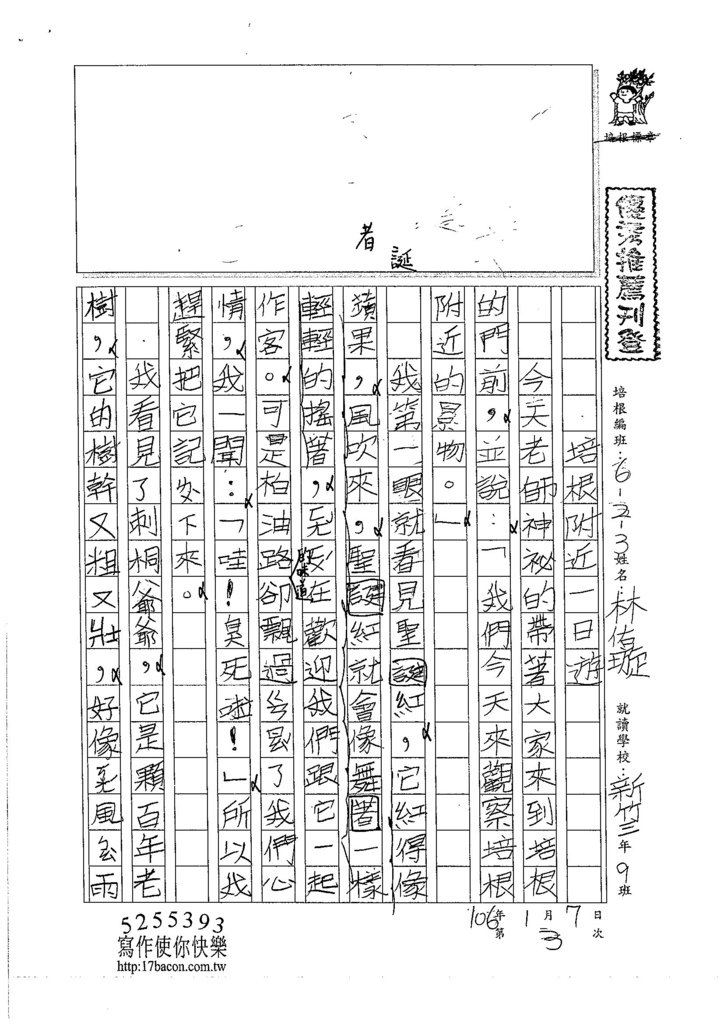 培根標章
優秀推薦刊登
培根編班：6-2-3姓名：林佑璇 就讀學校：新竹三年9班
106年1月7日
第3次
者
誕
培根附近一日遊
今天老師神祕的帶著大家來到培根
的門前，並說：「我們今天來觀察培根
附近的景物。」
我第一眼就看見聖誕紅，它紅得像
蘋果，風吹來，聖誕紅就會像舞著一樣
輕輕的搖著，在歡迎我們跟它一起
作客。可是柏油路卻飄過我們心
味道
情，我一聞：「哇！臭死啦！」所以我
趕緊把它記下來。
我看見了刺桐爺爺，它是顆百年老
樹，它的樹幹又粗又壯，好像風雨
5255393
寫作使你快樂
http:17bacon.com.tw